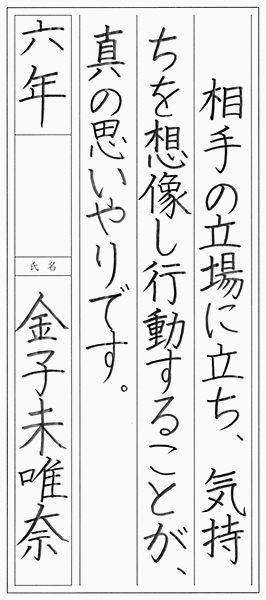 相手の立場に立ち、気持
ちを想像し行動することが、
真の思いやりです。
六年
氏名
金子未唯奈